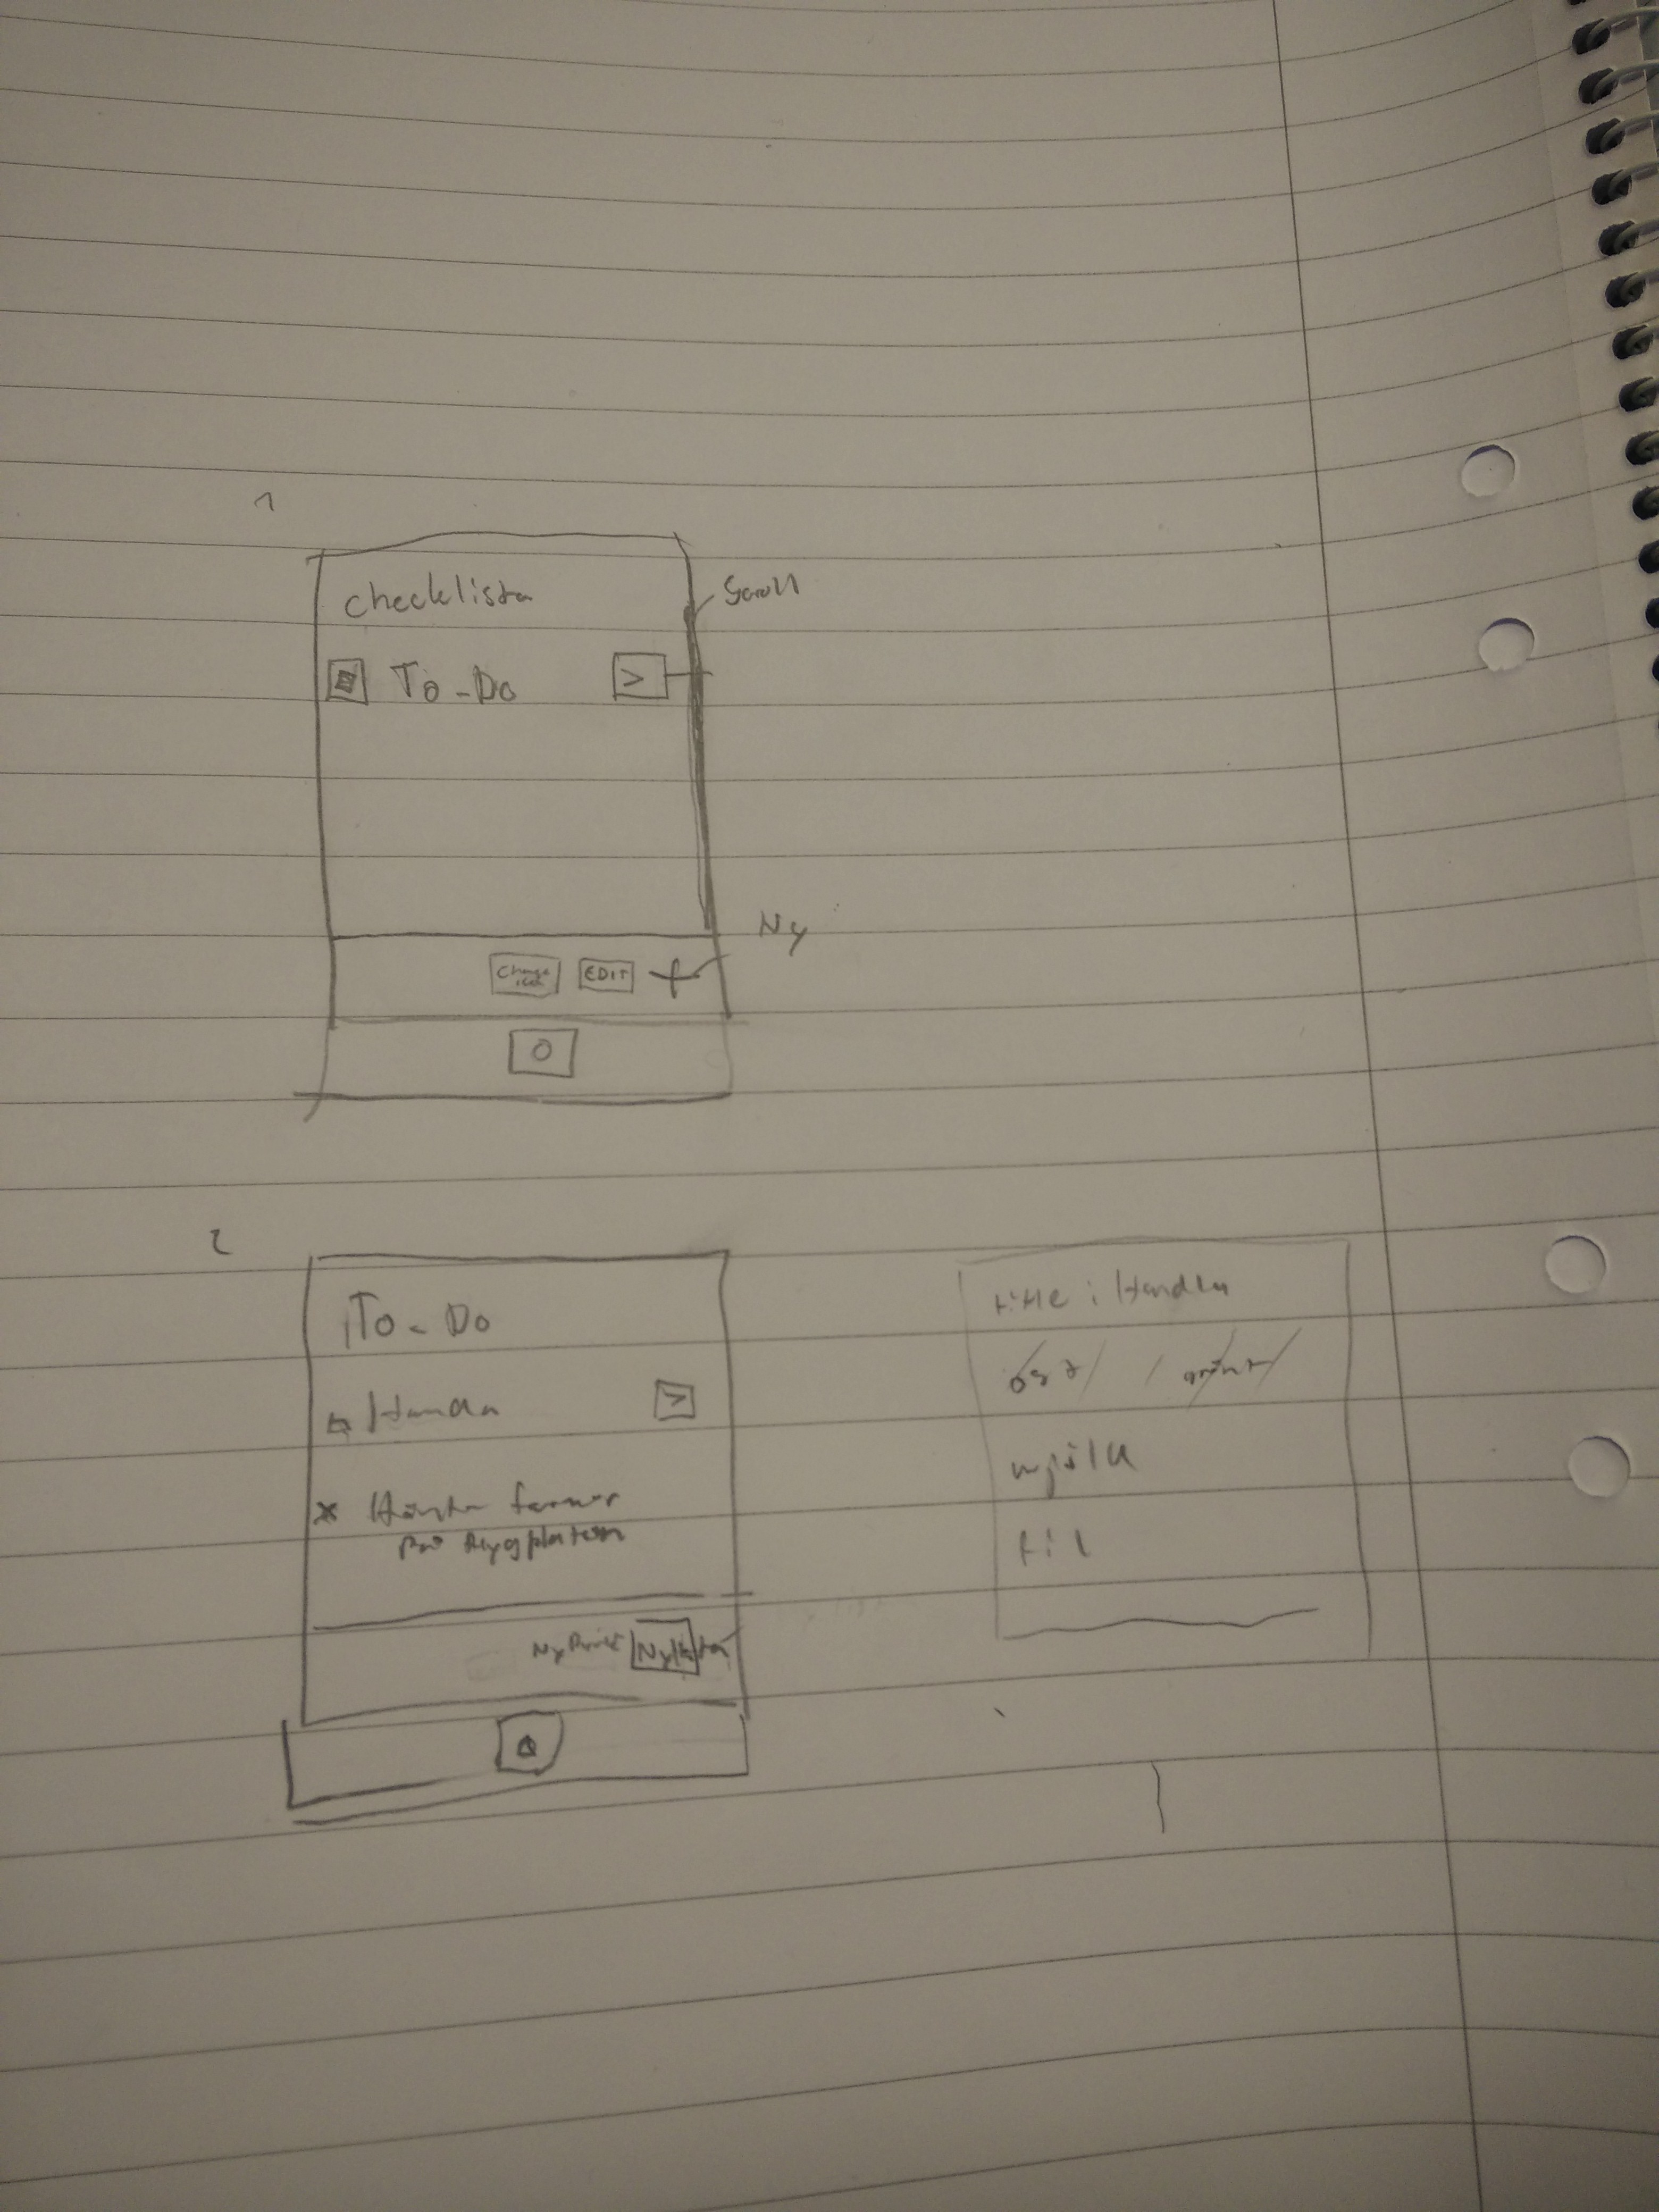 1
checklista
Scroll
To-Do >
Ny
Change icon EDIT +
2
To-Do
Handla >
Hämta farmor
på flygplatsen
Ny Punkt Ny lista
title: Handla
ost
mjölk
fil